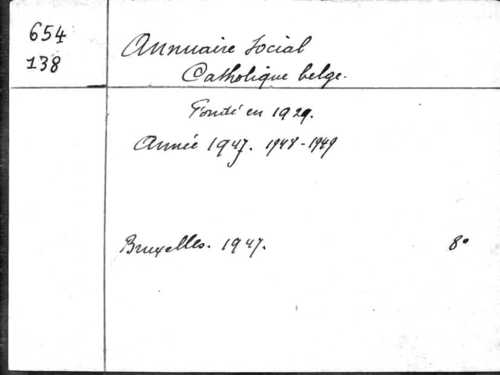 654
138
Annuaire Social
Catholique belge.
Fondé en 1929.
Année 1947. 1948-1949
Bruxelles. 1947. 8°